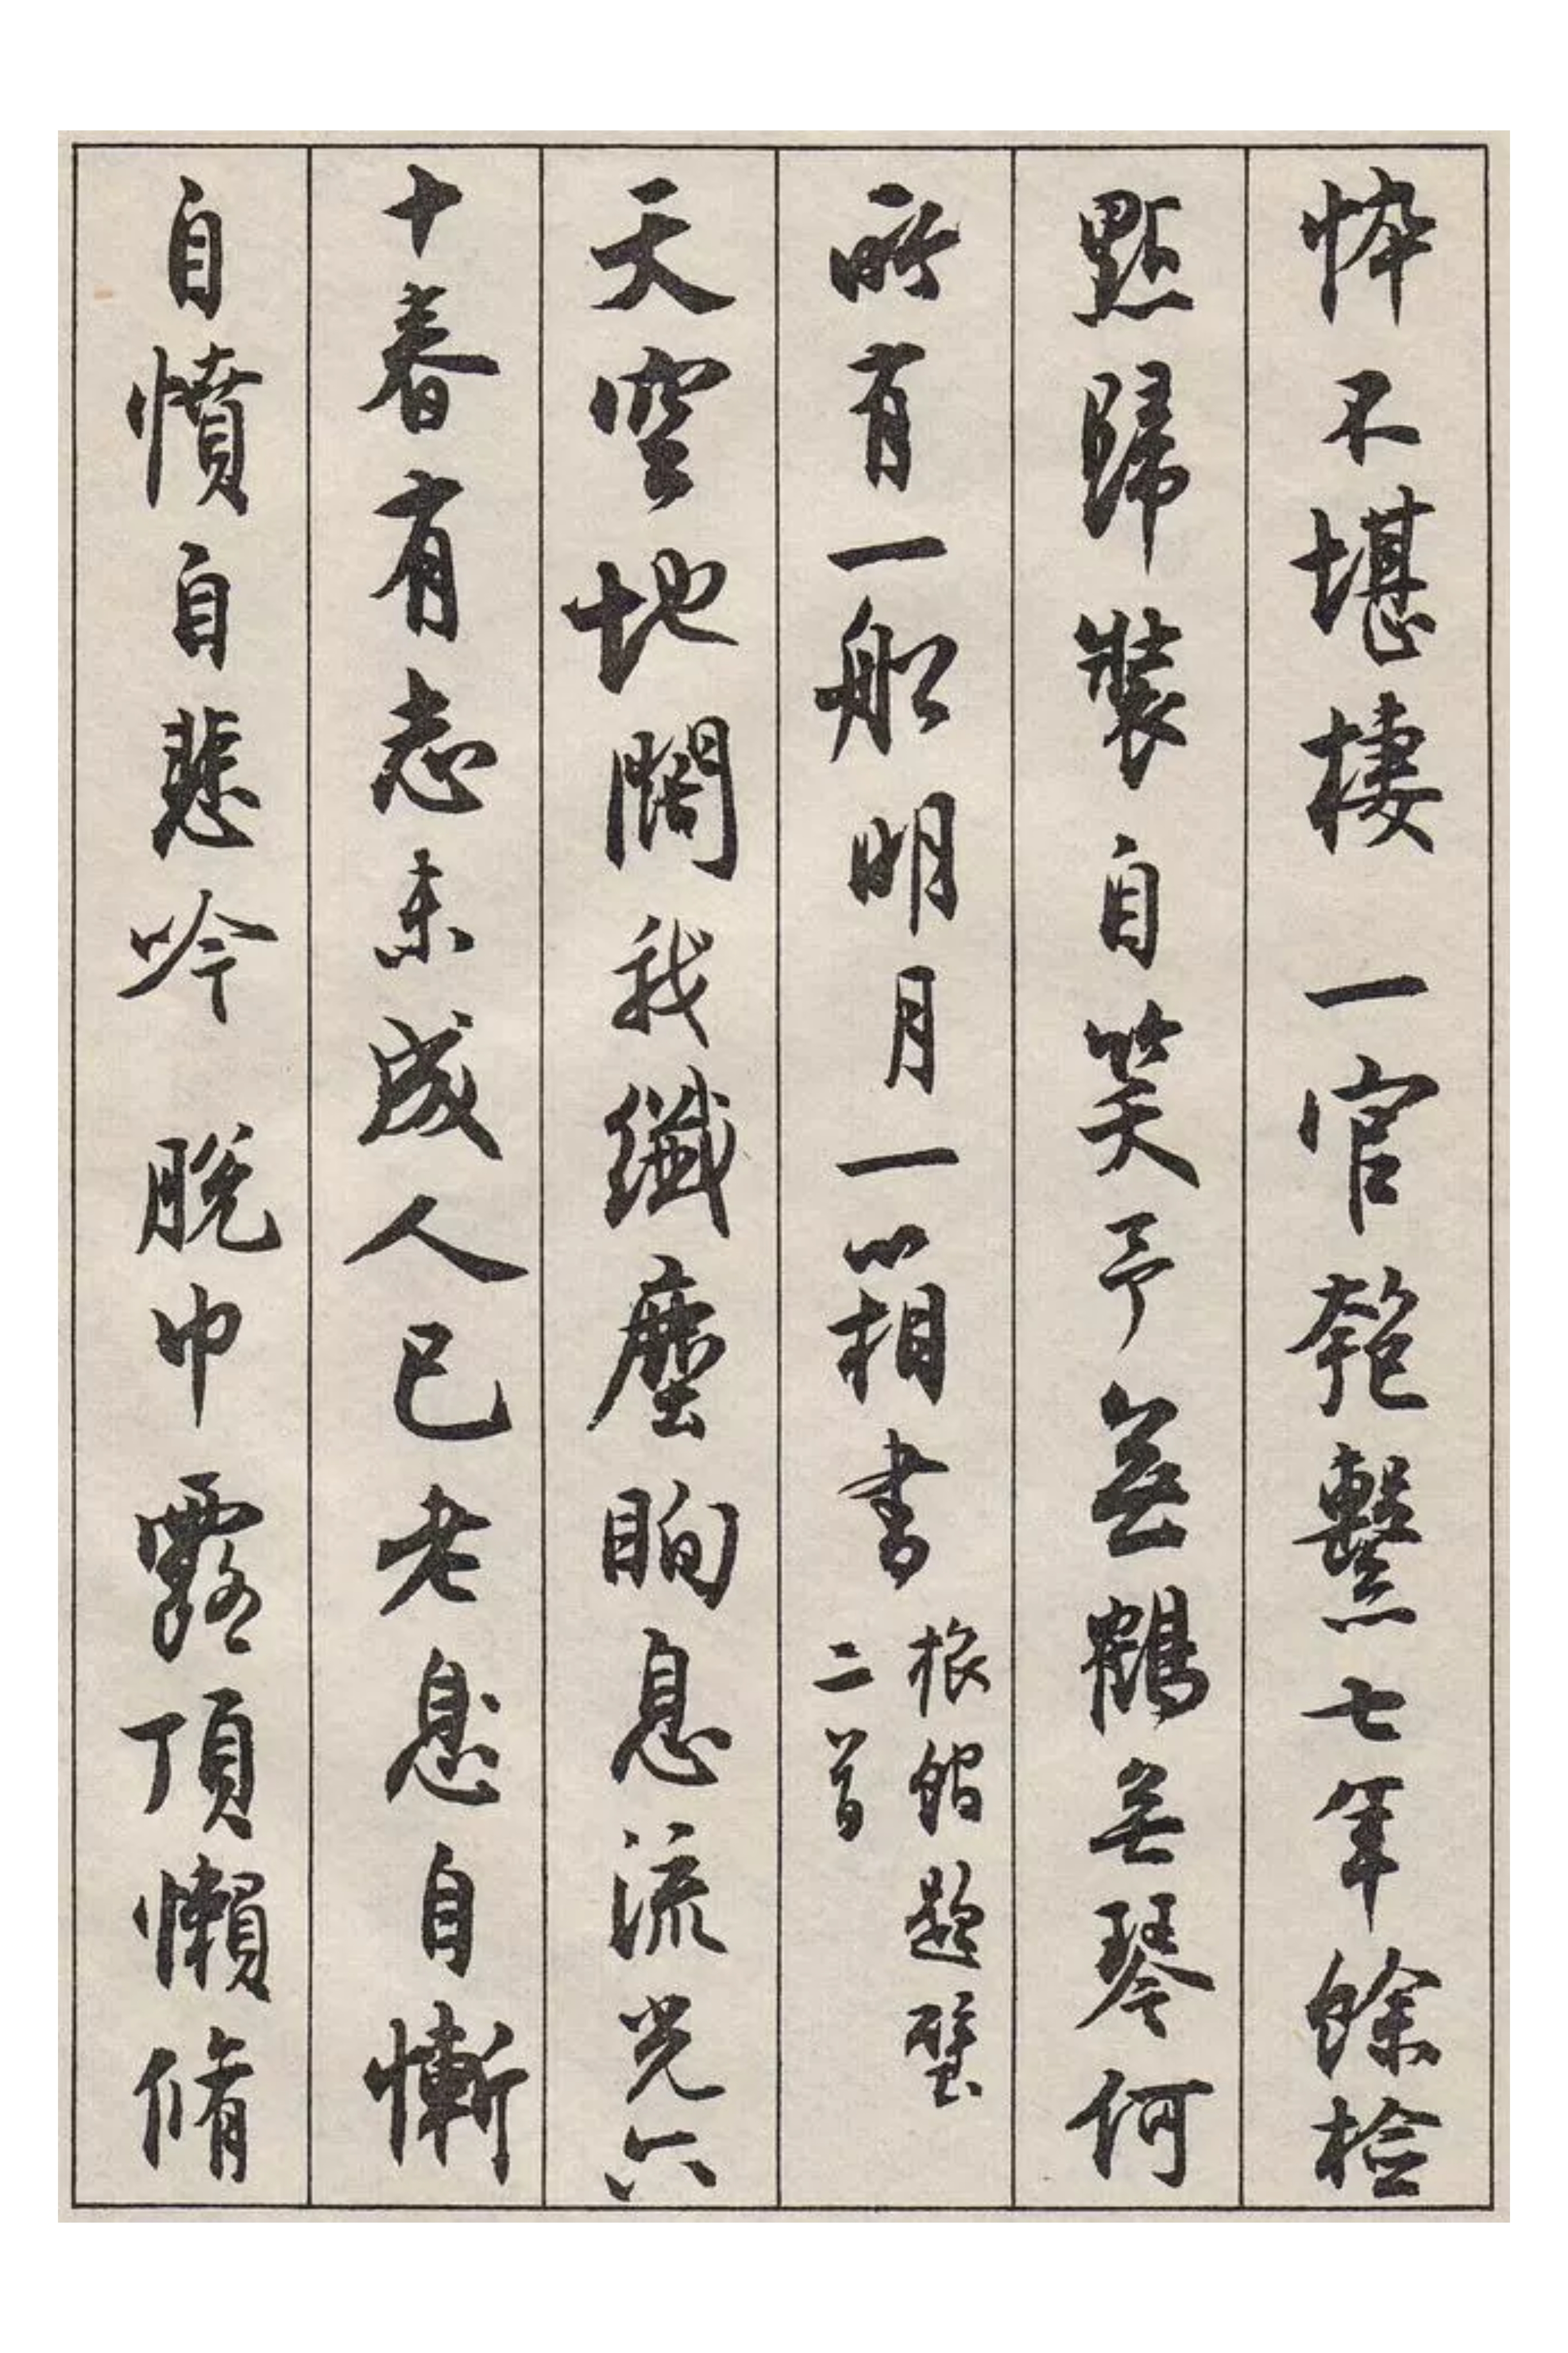 忰不堪棲一官匏繫七年餘檢
點歸裝自笑予無鶴無琴何
所有一船明月一箱書
旅館題壁
二首
天空地闊我纖塵眴息流光六
十春有志未成人已老自慚
自憤自悲吟脫巾露頂懶脩